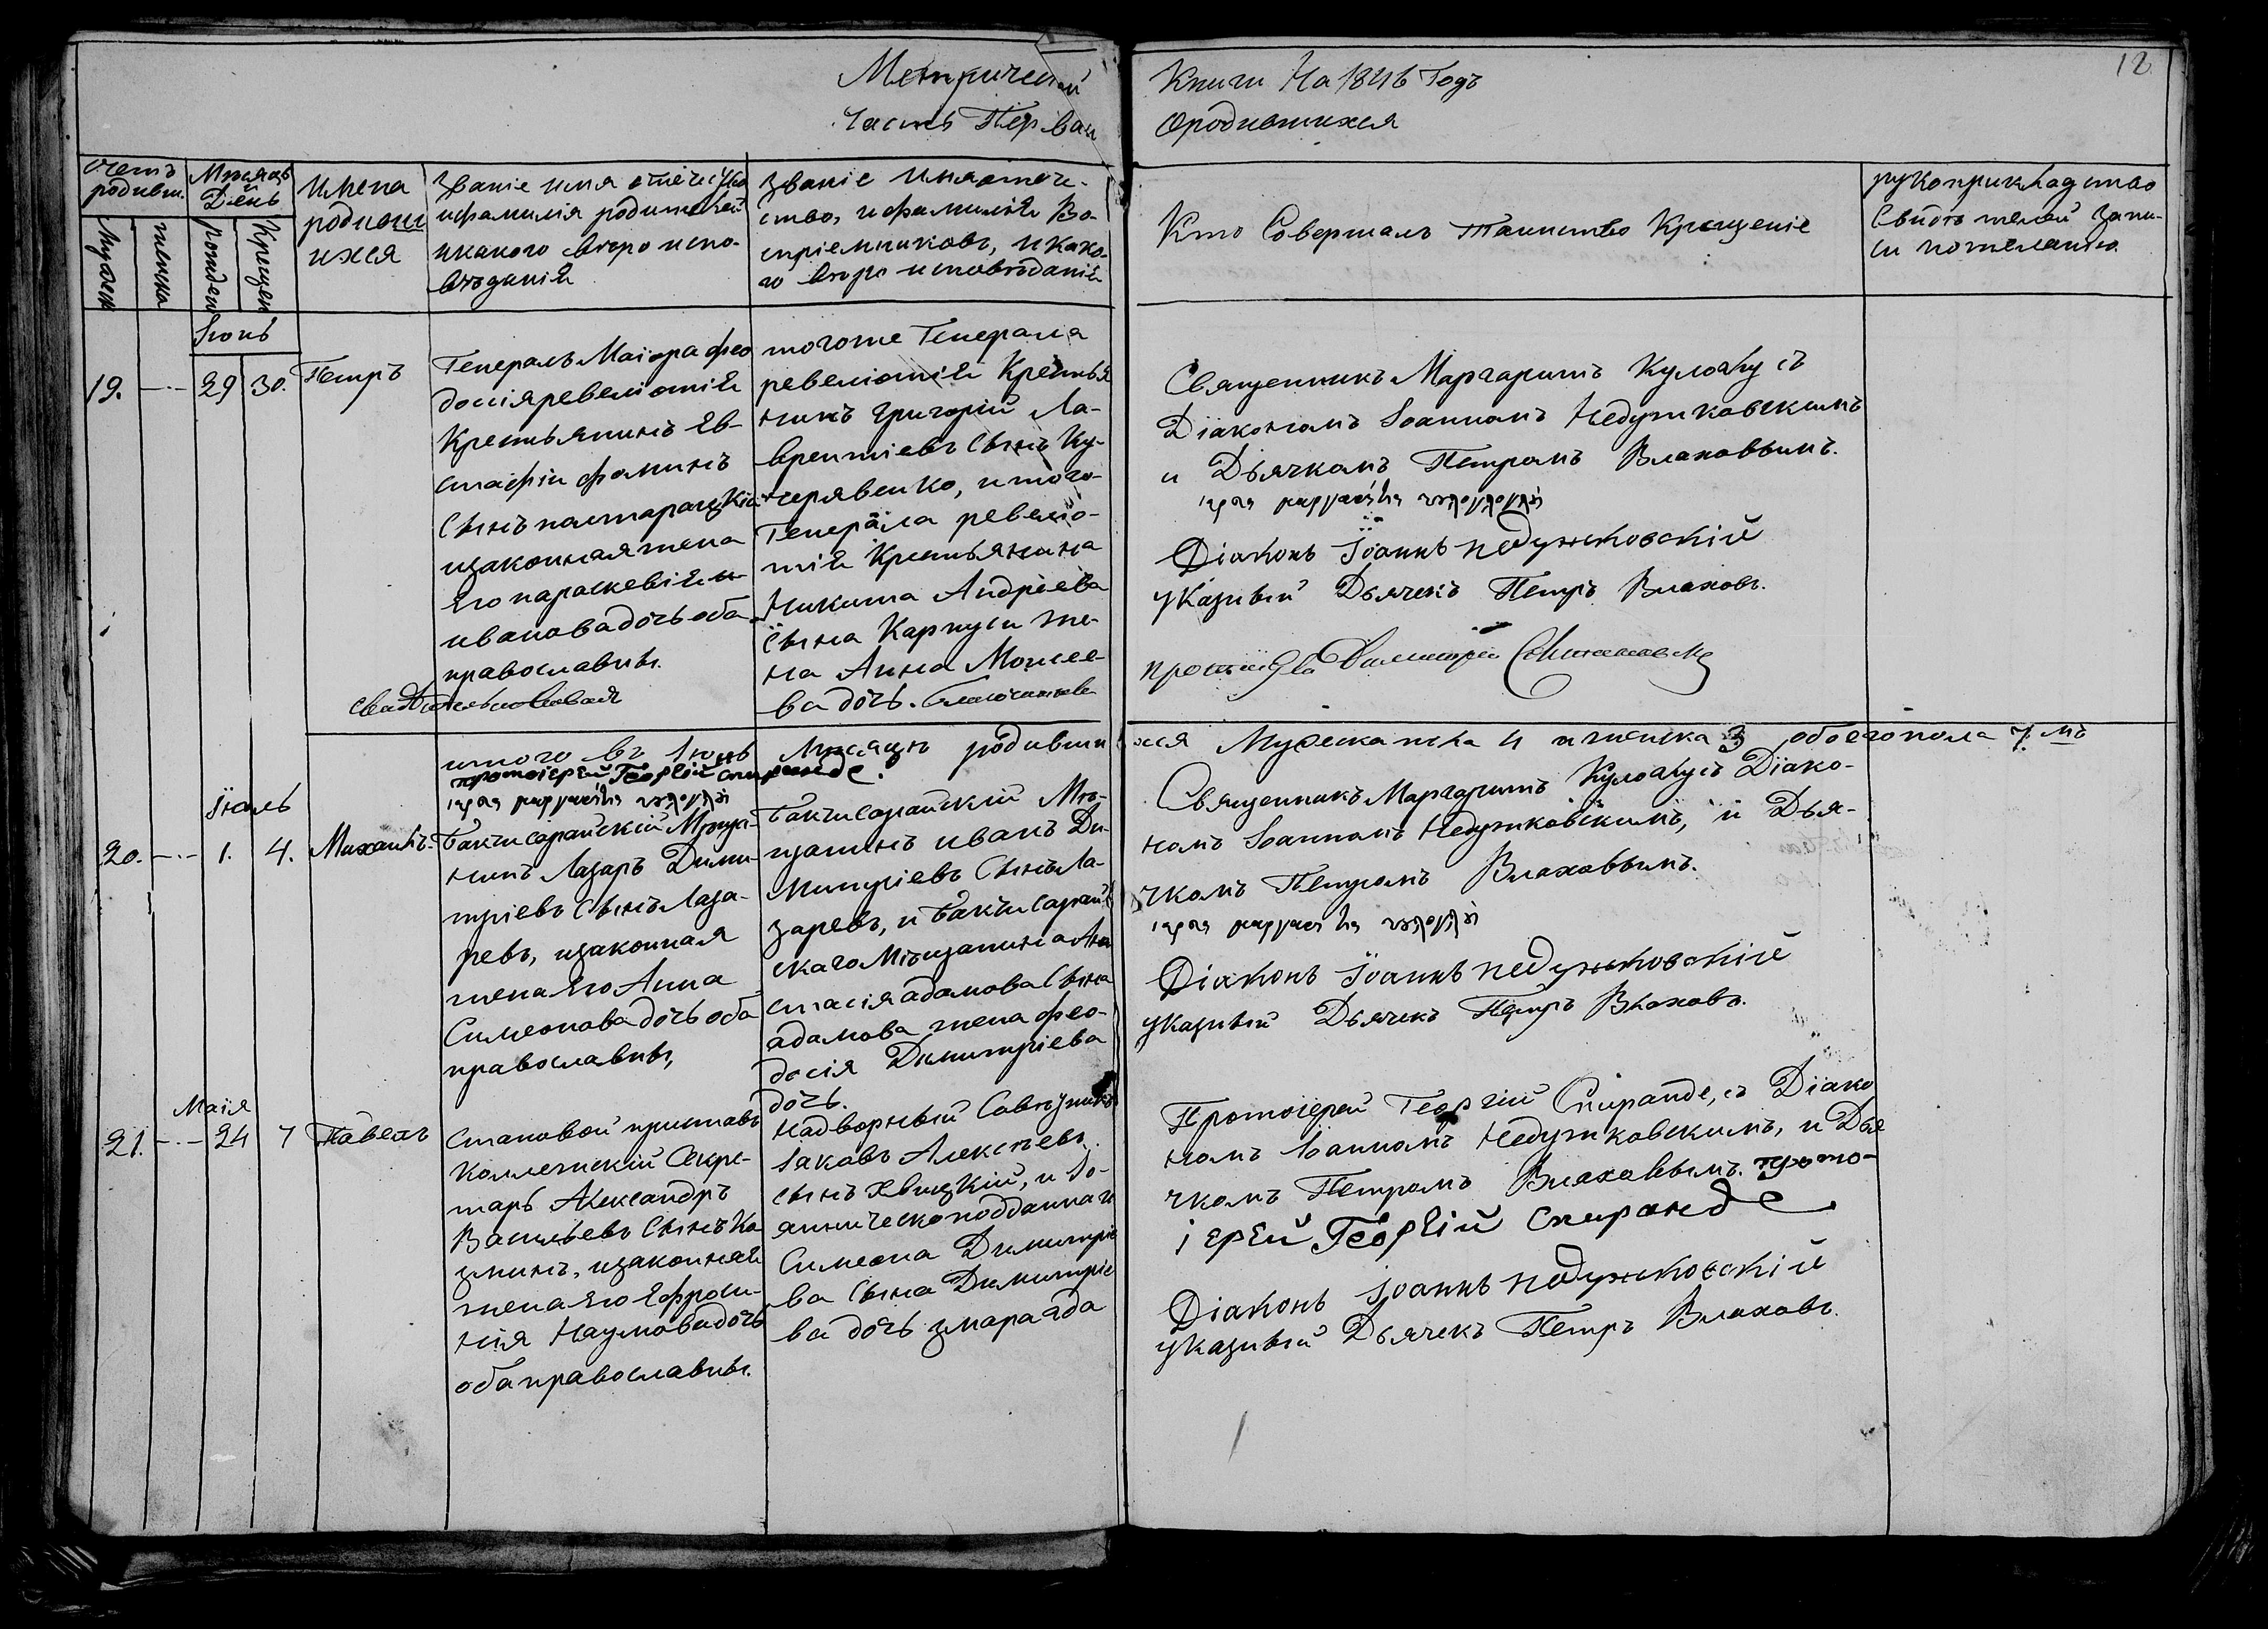 Метрической
Часть Первая
Книги На 1846 Годъ
О родившихся
12
Счетъ родивш.
Мѣсяцъ и День
Имена
родивш
ихся
Званіе имя отечество
и фамилія родителей
и какого вѣроиспо-
вѣданія
Званіе имя отече-
ство, и фамилія Во-
спріемниковъ, и како-
го вѣроисповѣданія
Кто Совершалъ Таинство Крещеніе
рукоприкладство
Свидѣтелей запи-
си по желанію
Мужеск
женска
рожден
Крещен
Іюнь
19.
29
30.
Петръ
Генералъ Маіора Фео
досія ревеліотія
Крестьянинъ Ев-
стафій Фоминъ
Сынъ
и законная жена
Его параскевія
иванова дочь оба
православны.
тогоже Генерала
ревеліотія Крестья
нинъ Григорій Ла-
врентіевъ Сынъ Ку-
черявенко, и того
Генерала ревеліо-
тія Крестьянина
Никита Андріева
Сына Карпуси же-
на Анна Моисее-
ва дочь.
Священникъ Маргаритъ Кулоглу съ
Діакономъ Іоанномъ Недужковскимъ
и Дьячкомъ Петромъ Влаховымъ.
Діаконъ Іоаннъ недужковскій
указный Дьячекъ Петръ Влаховъ.
Свидѣтельствовалъ
Димитрій
итого въ Іюнѣ Мѣсяцѣ родивши хся Мужеска пола 4 и женска 3 обоего пола 7мъ
протоіерей Георгій спиранде.
Іюль
20.
1.
4.
Михаилъ.
Бахчисарайскій Мѣща-
нинъ Лазарь Дими-
тріевъ Сынъ Лаза-
ревъ, и законная
жена его Анна
Симеонова дочь оба
православны,
Бахчисарайскій Мѣ-
щанинъ иванъ Ди-
митріевъ Сынъ Ла-
заревъ, и Бахчисарай
скаго Мѣщанина Ана
стасія адамова Сына
адамова жена Фео-
досія Димитріева
дочь.
Священникъ Маргаритъ Кулоглу съ Діако-
номъ Іоанномъ Недужковскимъ, и Дья-
чкомъ Петромъ Влаховымъ.
Діаконъ Іоаннъ недужковскій
указный Дьячекъ Петръ Влаховъ.
Маія
21.
24
7
Павелъ
Становой приставъ
Коллежскій Секре-
тарь Александръ
Васильевъ Сынъ Ка
зминъ, и законная
жена его Ефроси-
нія Наумова дочь
оба православны.
Надворный Совѣтникъ
Іаковъ Алексѣевъ
сынъ Хвицкій, и Іо-
ническоподданнаго
Симеона Димитріе
ва Сына Димитріе
ва дочь змарагда
Протоіерей Георгій Спиранде, съ Діако
номъ Іоанномъ Недужковскимъ, и Дья
чкомъ Петромъ Влаховымъ. прото-
іерей Георгій спиранде
Діаконъ Іоаннъ недужковскій
указный Дьячекъ Петръ Влаховъ.